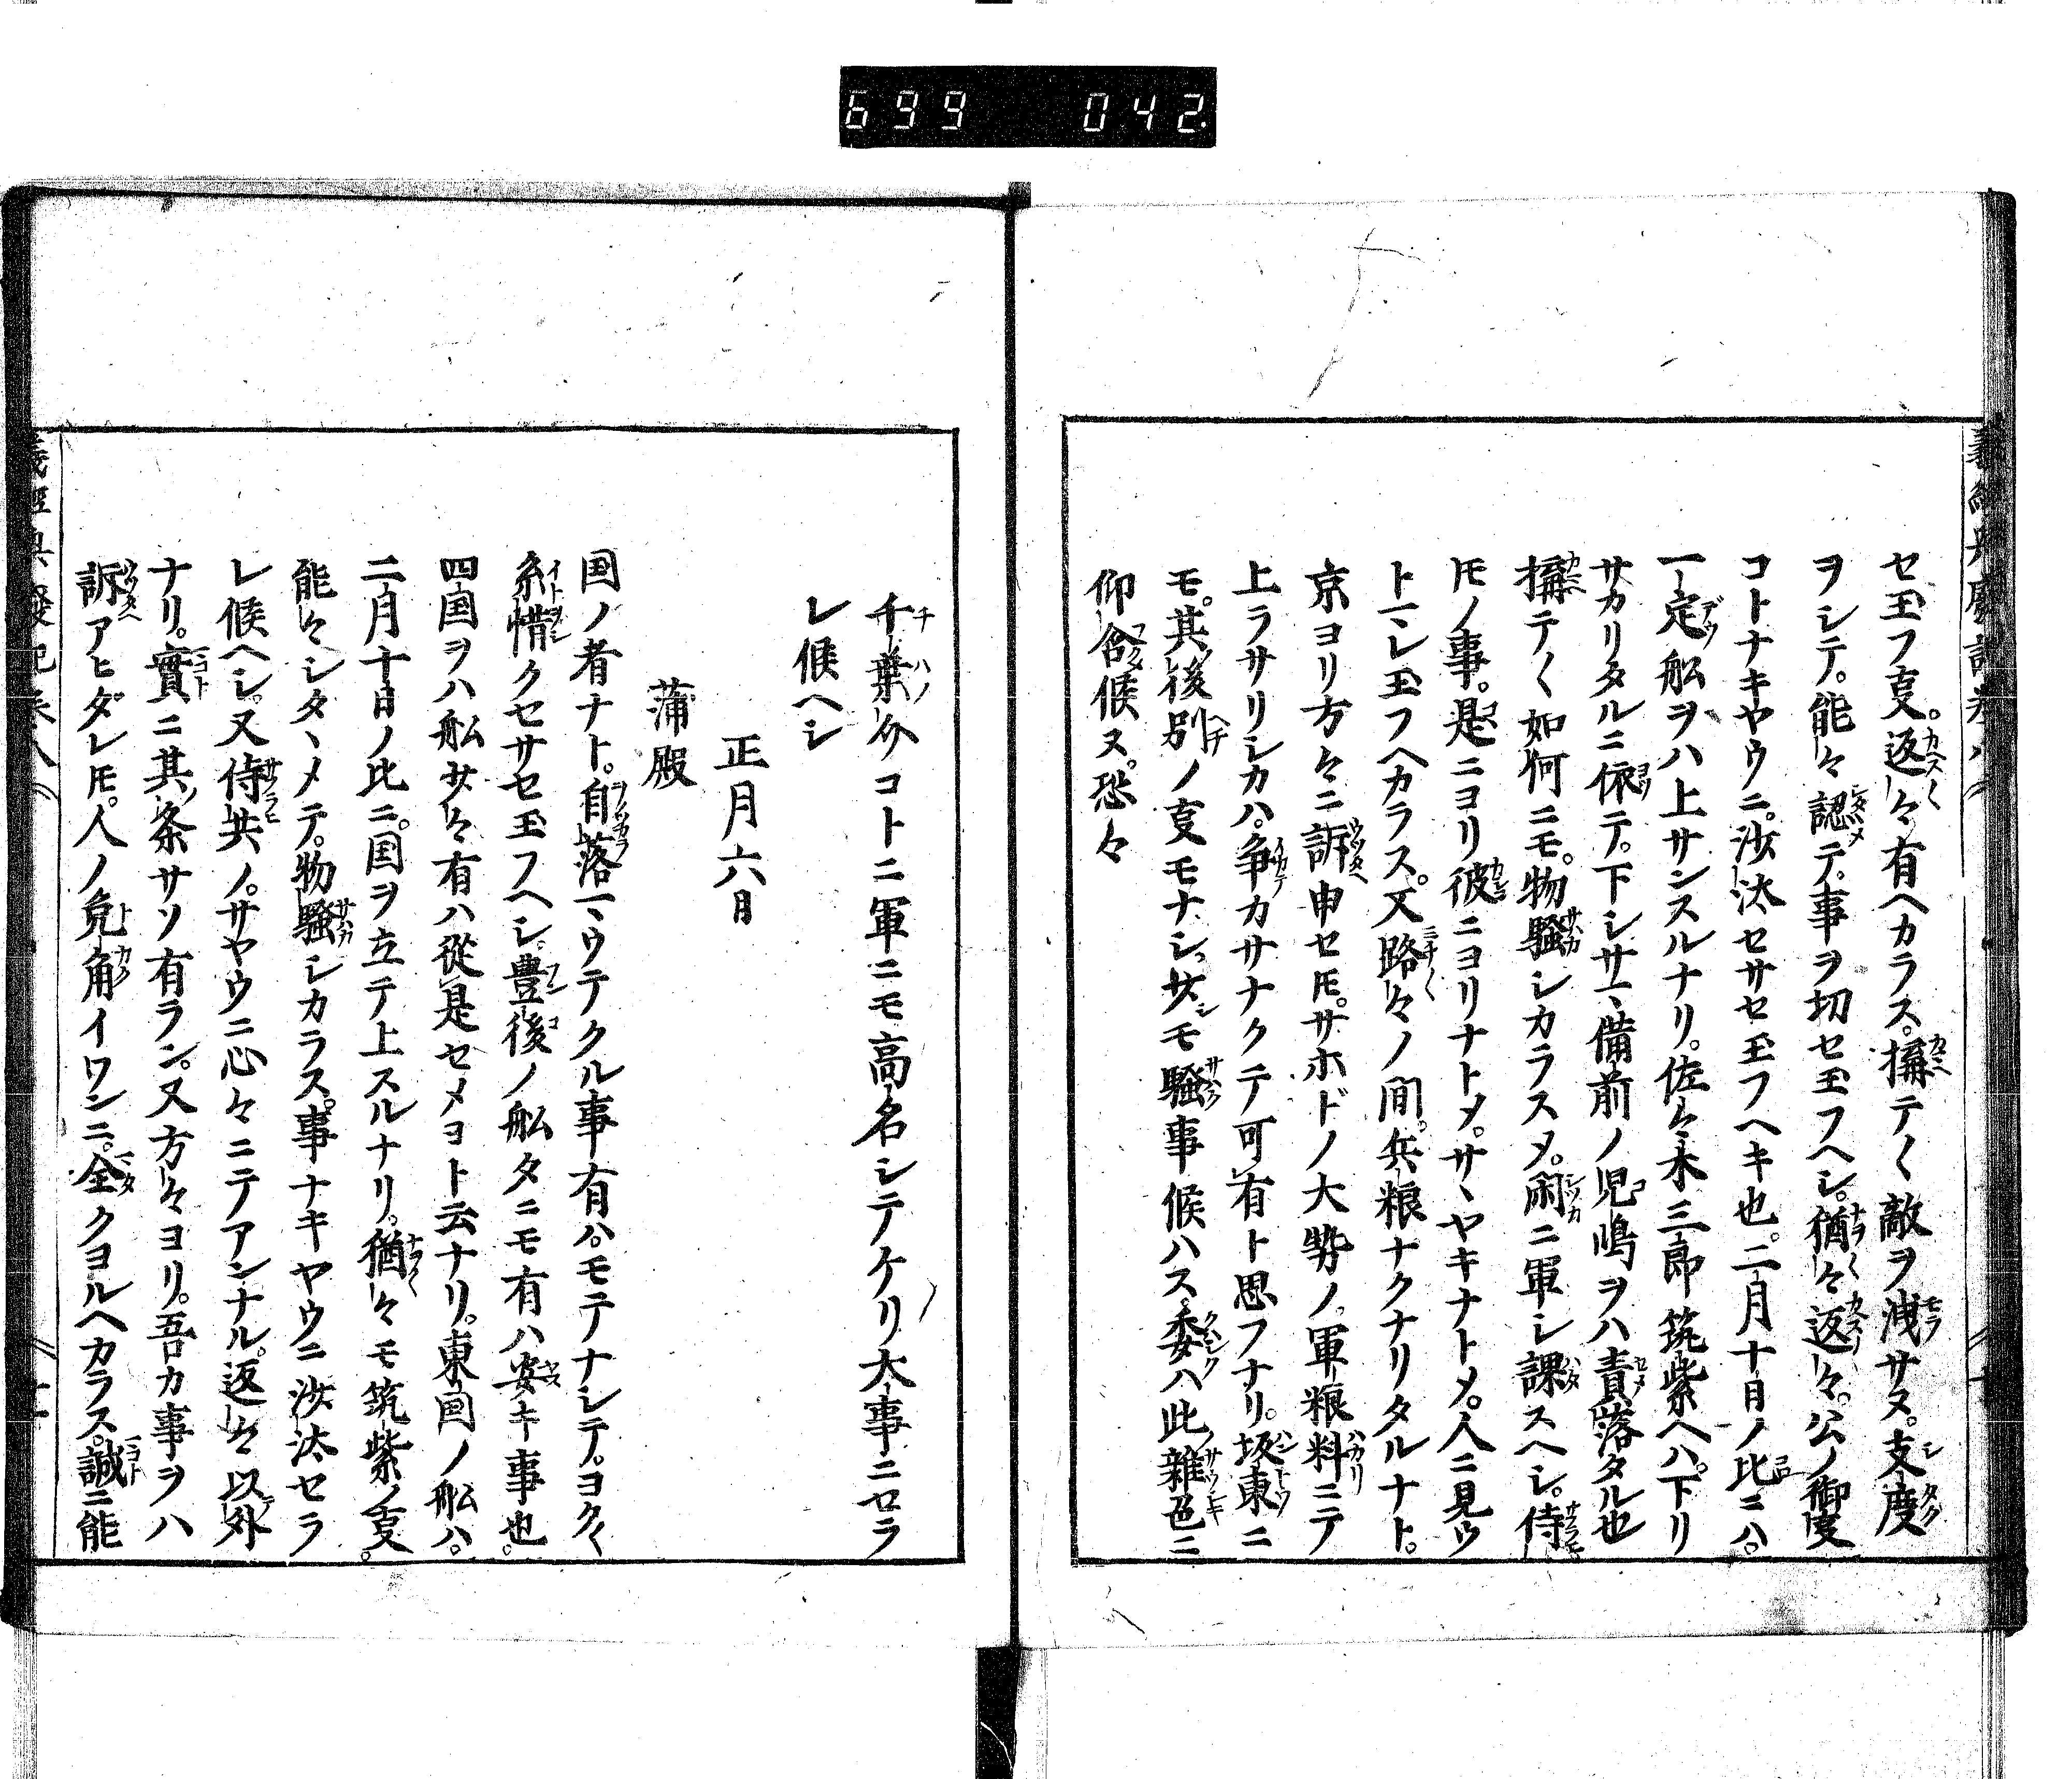 699 042.
セ玉フ叓。返々有ヘカラス。搆テ〱敵ヲ洩サヌ。支度
ヲシテ。能々認テ。事ヲ切セ玉フヘシ。猶々返々。公ノ御叓
コトナキヤウニ。沙汰セサセ玉フヘキ也。二月十日ノ比ニハ。
一定舩ヲハ上サンスルナリ。佐々木三郎筑紫ヘハ。下リ
サカリタルニ依テ。下シサヽ備前ノ児嶋ヲハ責落タル也
搆テ〱如何ニモ。物騒シカラスメ。閑ニ軍シ課スヘシ。侍
𪜈ノ事。是ニヨリ彼ニヨリナトメ。サヽヤキナトメ。人ニ見ウ
トマレ玉フヘカラス。又路々ノ間。兵粮ナクナリタルナト。
京ヨリ方々ニ訴申セ𪜈。サホドノ大勢ノ。軍粮料ニテ
上ラサリシカハ。争カサナクテ可有ト思フナリ。坂東ニ
モ。其後別ノ叓モナシ。少モ騒事候ハス。委ハ此雜色ニ
仰含候ヌ。恐々
千葉介コトニ軍ニモ高名シテケリ大事ニセラ
レ候ヘシ
正月六日
蒲殿
国ノ者ナト。自落マウテクル事有ハ。モテナシテ。ヨク〱
糸惜クセサセ玉フヘシ。豊後ノ舩タニモ有ハ安キ事也。
四国ヲハ舩少々有ハ從是セメヨト云ナリ。東国ノ舩ハ。
二月十日ノ比ニ。国ヲ立テ上スルナリ。猶々モ筑紫ノ叓。
能々シタヽメテ。物騒シカラス。事ナキヤウニ沙汰セラ
レ候ヘシ。又侍共ノ。サヤウニ心々ニテアンナル。返々以外
ナリ。實ニ其条サソ有ラン。又方々ヨリ。吾カ事ヲハ
訴アヒダレ𪜈。人ノ兎角イワンニ。全クヨルヘカラス。誠ニ能